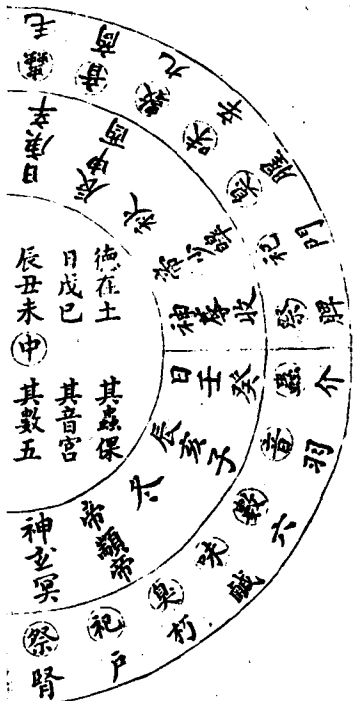 德在土
日戊巳
辰丑未
中
其蟲倮
其音宮
其數五
日庚辛
辰申酉
秋
帝少皞
神蓐收
日壬癸
辰亥子
冬
帝顓帝
神玄冥
蟲毛
音商
數九
味辛
臭腥
祀門
祭
蟲介
音羽
數六
味鹹
臭朽
祀戶
祭腎